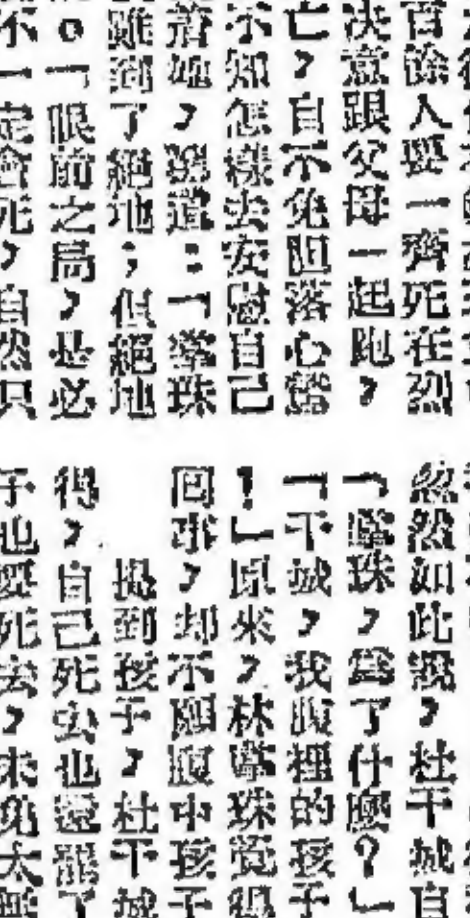 百餘人要一齊死在烈
决意跟父母一起跑，
亡，自不免胆落心驚
不知怎樣去安慰自己
着，說道：「掌珠
雖到了絕地；但絕地
。「眼前之局，是必
不一定會死，自然只
忽然如此說，杜干城自
「掌珠，為了什麼？」
「干城，我腹裡的孩子
！」原來，林掌珠覺得
，却不願腹中孩子
提到孩子，杜干城
得，自己死去也還罷了
也要死去，未免太無